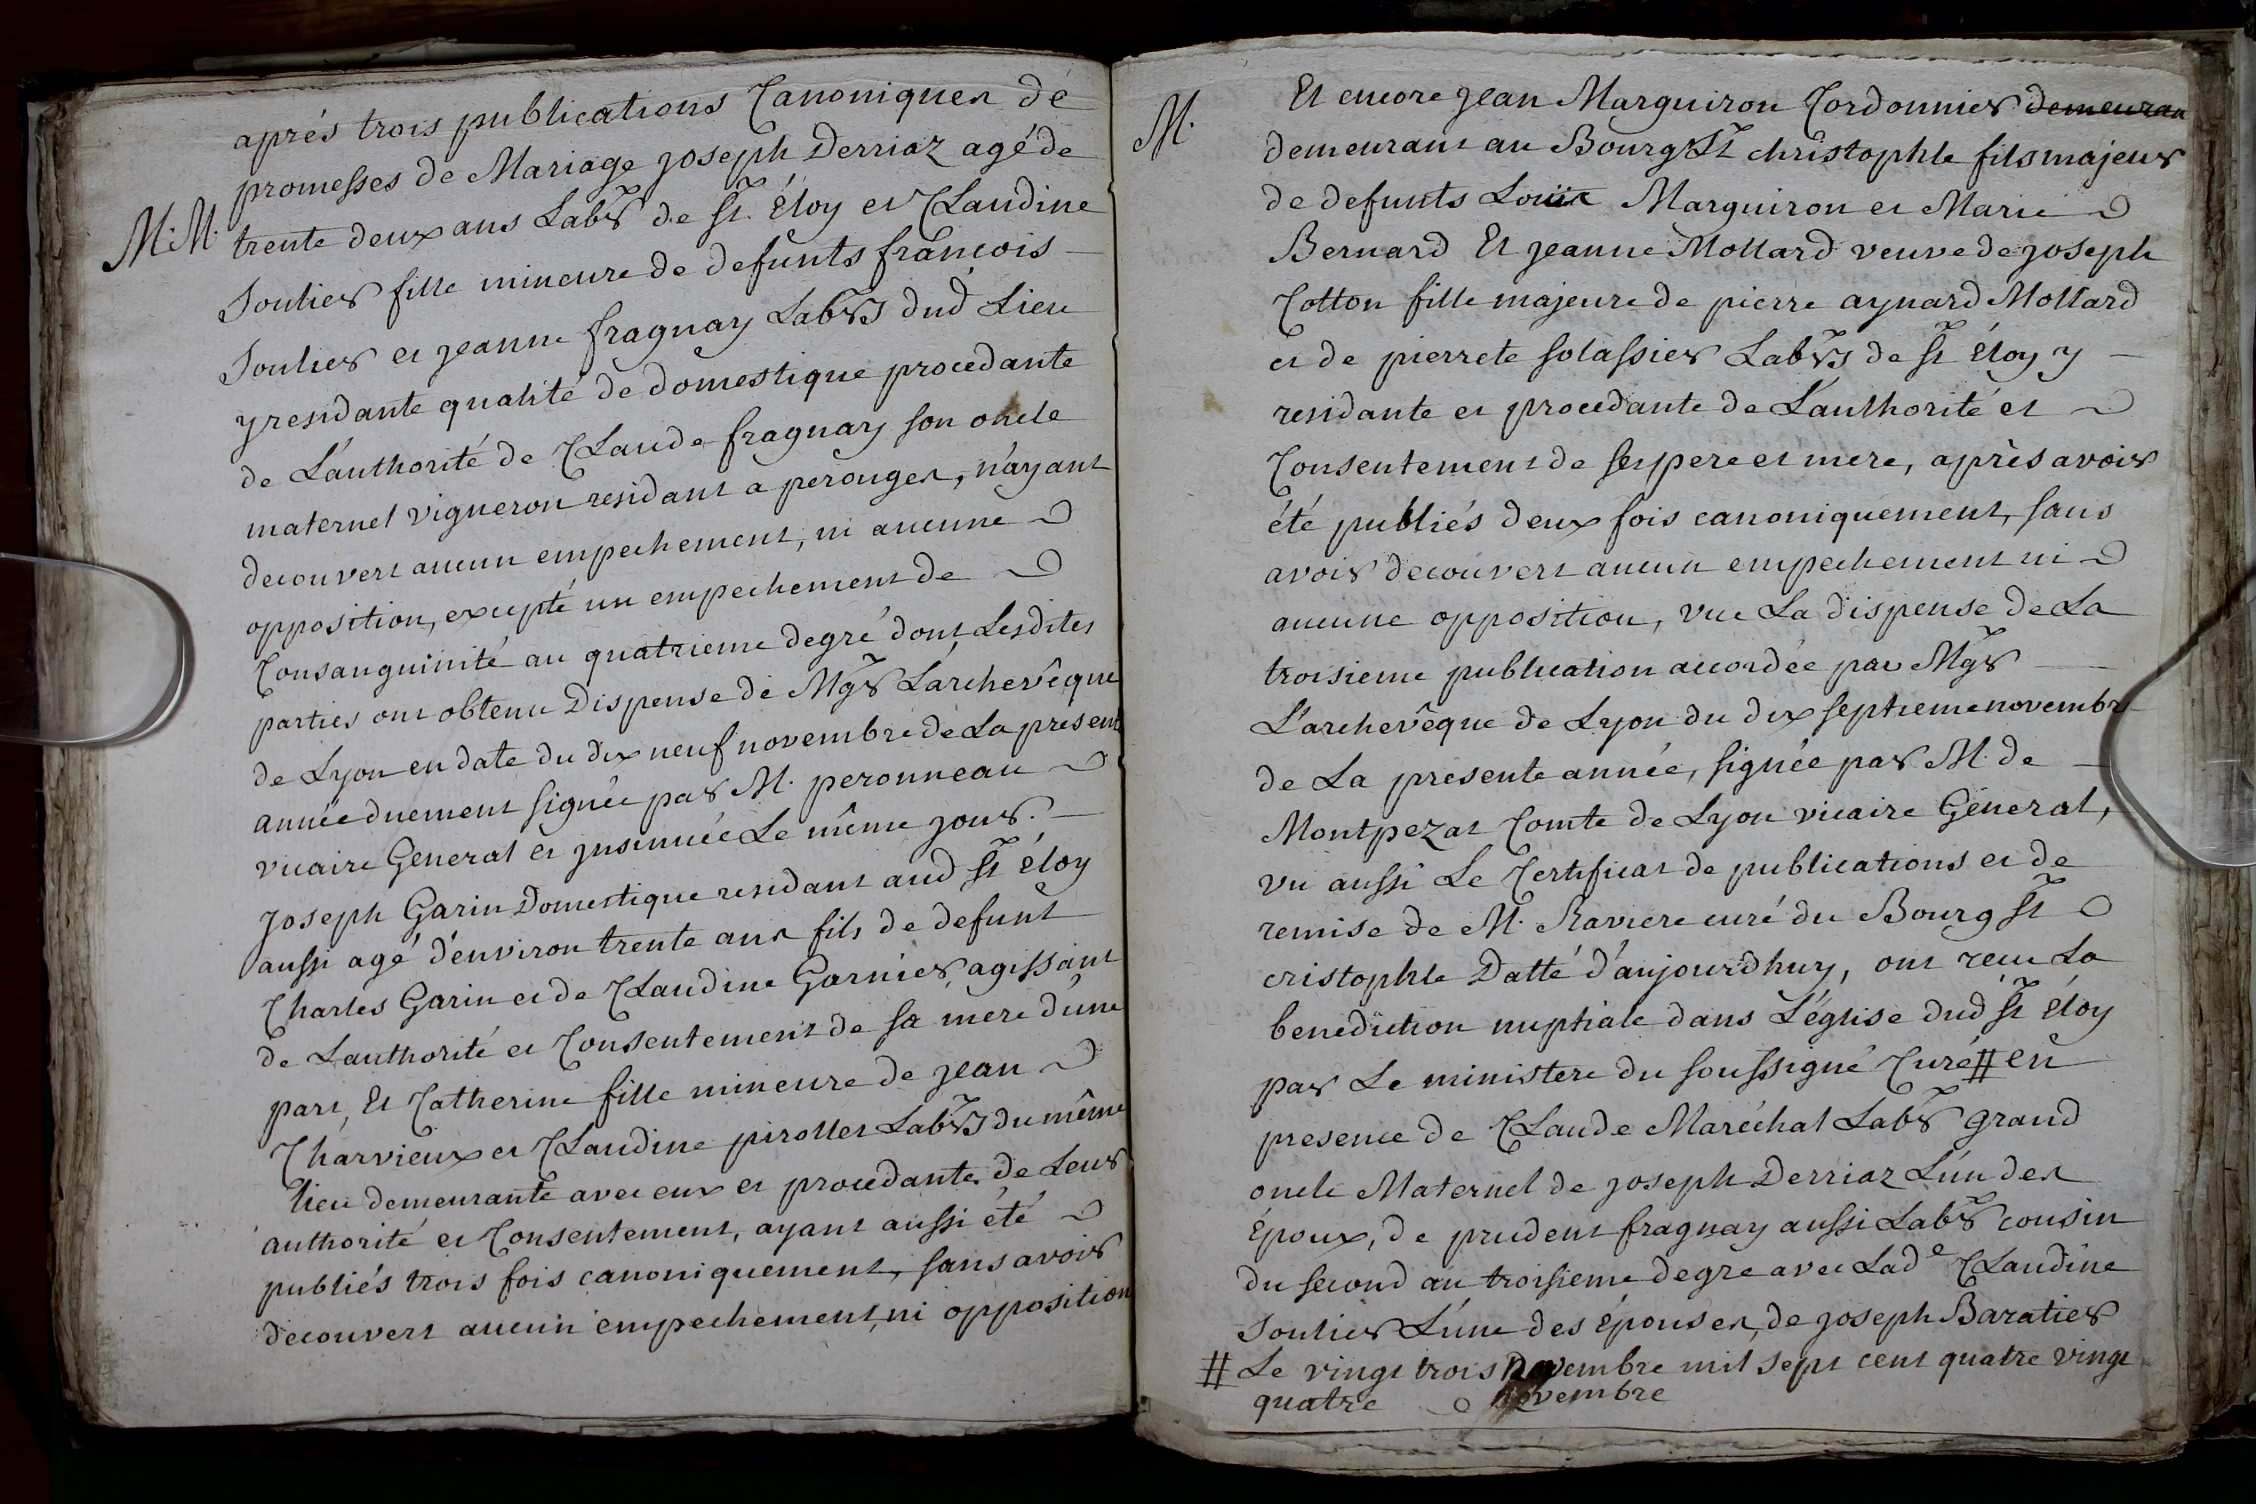 après trois publications Canoniques de
promesses de Mariage joseph Derriaz agé de
M. M. trente deux ans Labr de St. Éloy et Claudine
Soulier fille mineure de defunts francois
Soulier et jeanne fragnay Labrs dud Lieu
y residante qualité de domestique procedante
de L'authorité de Claude fragnay son oncle
maternel vigneron residant a perouges, n'ayant
decouvert aucun empechement, ni aucune
opposition, excepté un empechement de
Consanguinité au quatrieme degré dont Lesdites
parties ont obtenu Dispense de Mgr L'archevêque
de Lyon en date du dix neuf novembre de La present
année duement signée par M. peronneau
vicaire General et jnsinuée Le même jour.
joseph Garin Domestique residant aud St éloy
aussi agé d'environ trente ans fils de defunt
Charles Garin et de Claudine Garnier, agissant
de Lauthorité et Consentement de sa mere d'une
part, Et Catherine fille mineure de jean
Charvieux et Claudine pirollet Labrs du même
lieu demeurante avec eux et procedante de Leur
authorité et Consentement, ayant aussi été
publiés trois fois canoniquement, sans avoir
decouvert aucun empechement, ni opposition
M. Et encore jean Marguiron Cordonnier demeuran
demeurant au Bourg St christophle fils majeur
de defunts Louis Marguiron et Marie
Bernard Et jeanne Mollard veuve de joseph
Cotton fille majeure de pierre aynard Mollard
et de pierrete solassier Labrs de St Éloy y
residante et procedante de L'authorité et
Consentement de ses pere et mere, après avoir
été publiés deux fois canoniquement, sans
avoir decouvert aucun empechement ni
aucune opposition, vue La dispense de La
troisieme publication accordée par Mgr
L'archevêque de Lyon du dix septieme novembr
de La presente année, signée par M. de
Montpezat Comte de Lyon vicaire Géneral,
vu aussi Le Certificat de publications et de
remise de M. Raviere curé du Bourg St
cristophle Datté d'aujourdhuy, ont recu La
benediction nuptiale dans L'église dud St Éloy
par Le ministere du soussigné Curé # en
presence de Claude Maréchal Labr grand
oncle Maternel de joseph Derriaz L'un des
Époux, de prudent fragnay aussi Labr cousin
du second au troisieme degre avec Lade Claudine
Soulier L'une des épouses, de joseph Baratier
# Le vingt trois novembre mil sept cent quatre vingt
quatre novembre